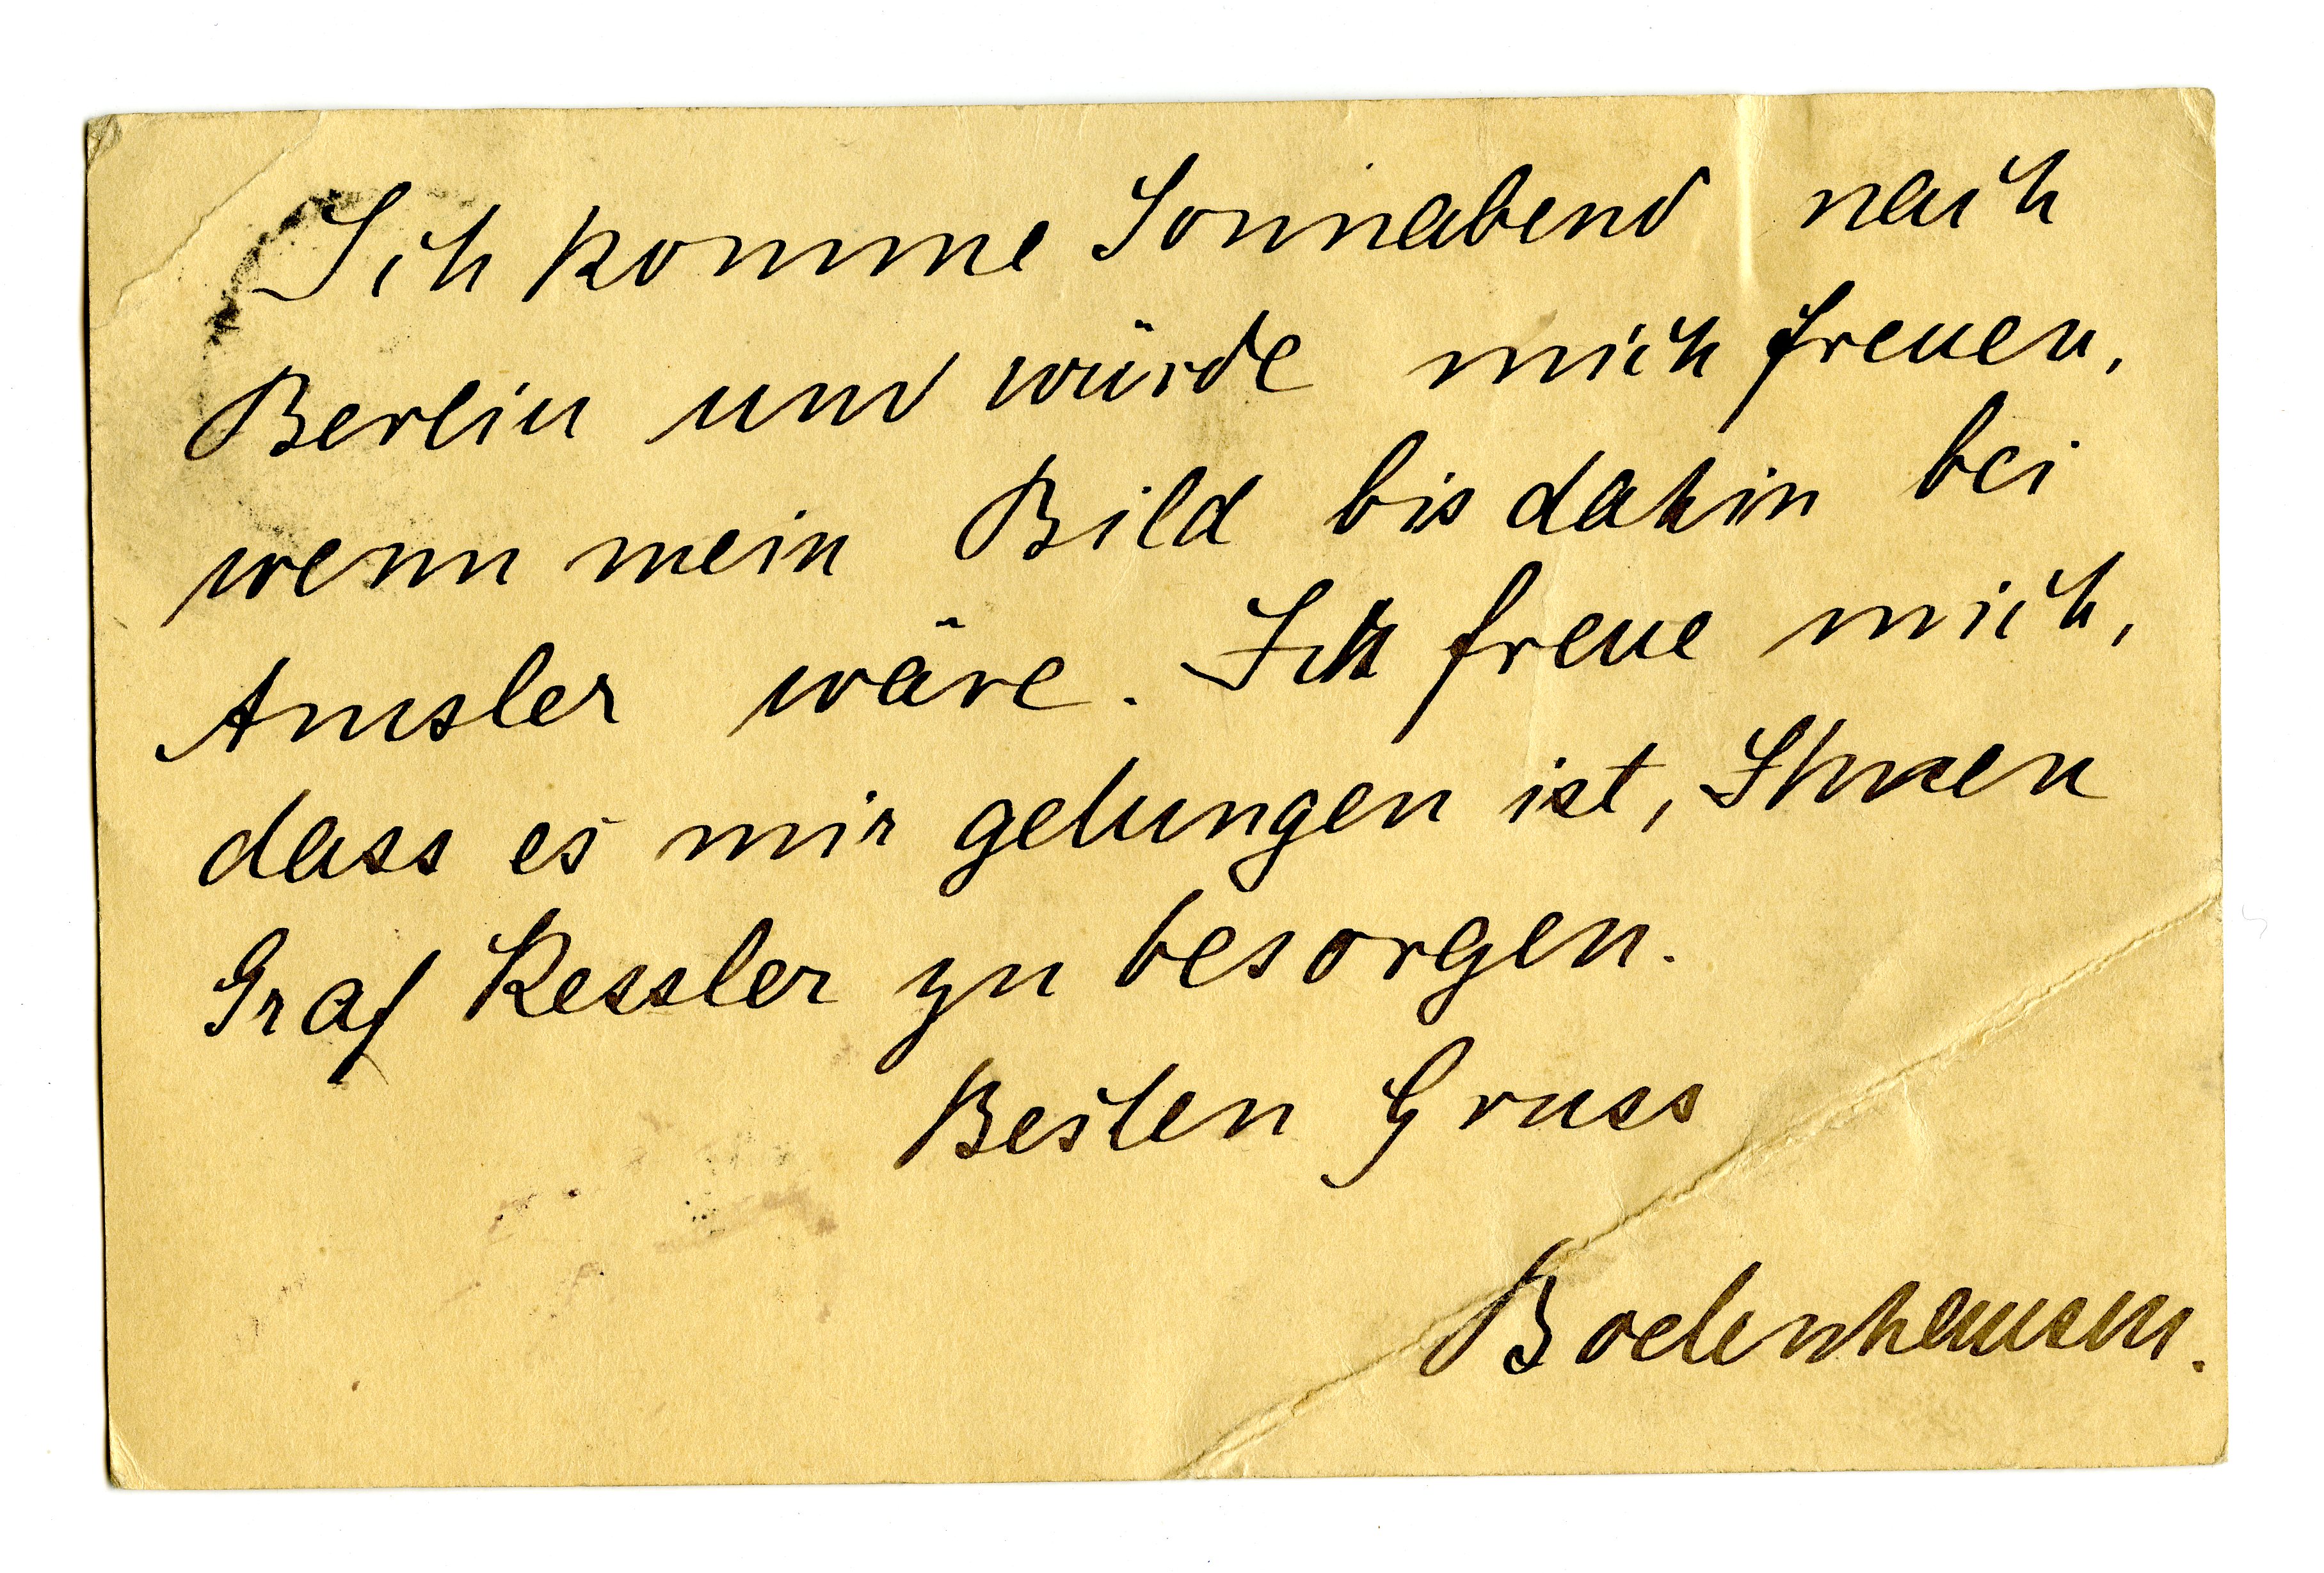 Ich komme Sonnabend nach
Berlin und würde mich freuen,
wenn mein Bild bis dahin bei
Amsler wäre. Ich freue mich,
dass es mir gelungen ist, Ihnen
Graf Kessler zu besorgen.
Besten Gruss
Bodenhausen.